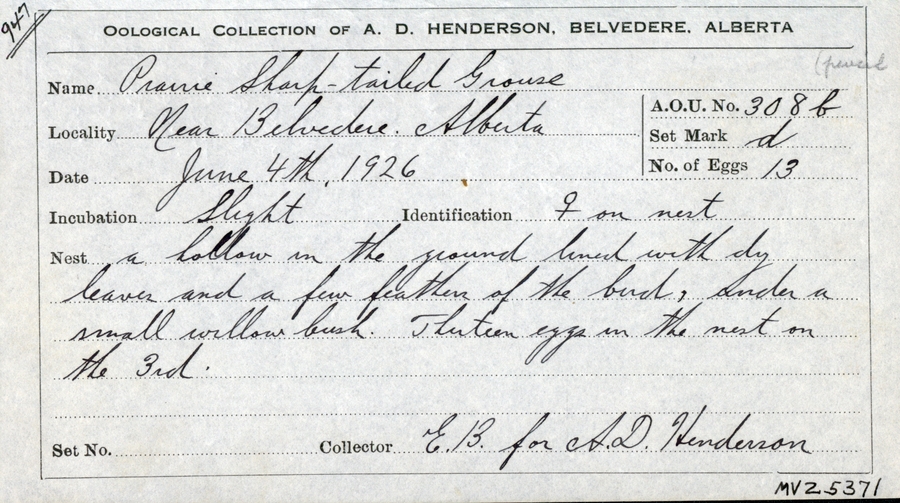 947
OOLOGICAL COLLECTION OF A. D. HENDERSON, BELVEDERE, ALBERTA
(pencil
Name Prairie Sharp-tailed Grouse
A.O.U. No. 308b
Locality Near Belvedere. Alberta
Set Mark d
Date June 4th, 1926
No. of Eggs 13
Incubation Slight Identification ♀ on nest
Nest a hollow in the ground lined with dry
leaves and a few feathers of the bird, under a
small willow bush. Thirteen eggs in the nest on
the 3rd.
Set No. Collector E.B. for A.D. Henderson
MVZ 5371